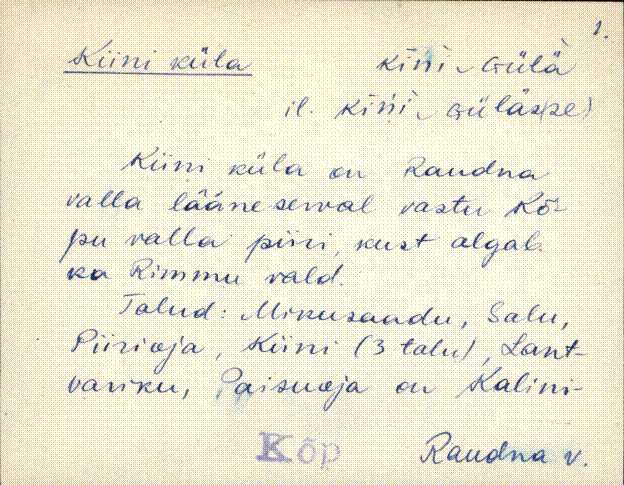 1.
Kiini küla kīni͜ gülä
il. kīni͜ güläs(se)
Kiini küla on Raudna
valla lääneserval vastu Kõ-
pu valla piiri, kust algab
ka Rimmu vald.
Talud: Mikusaadu, Salu,
Piirioja, Kiini (3 talu), Lant-
variku, Paisuoja on Kalini-
Kõp Raudna v.